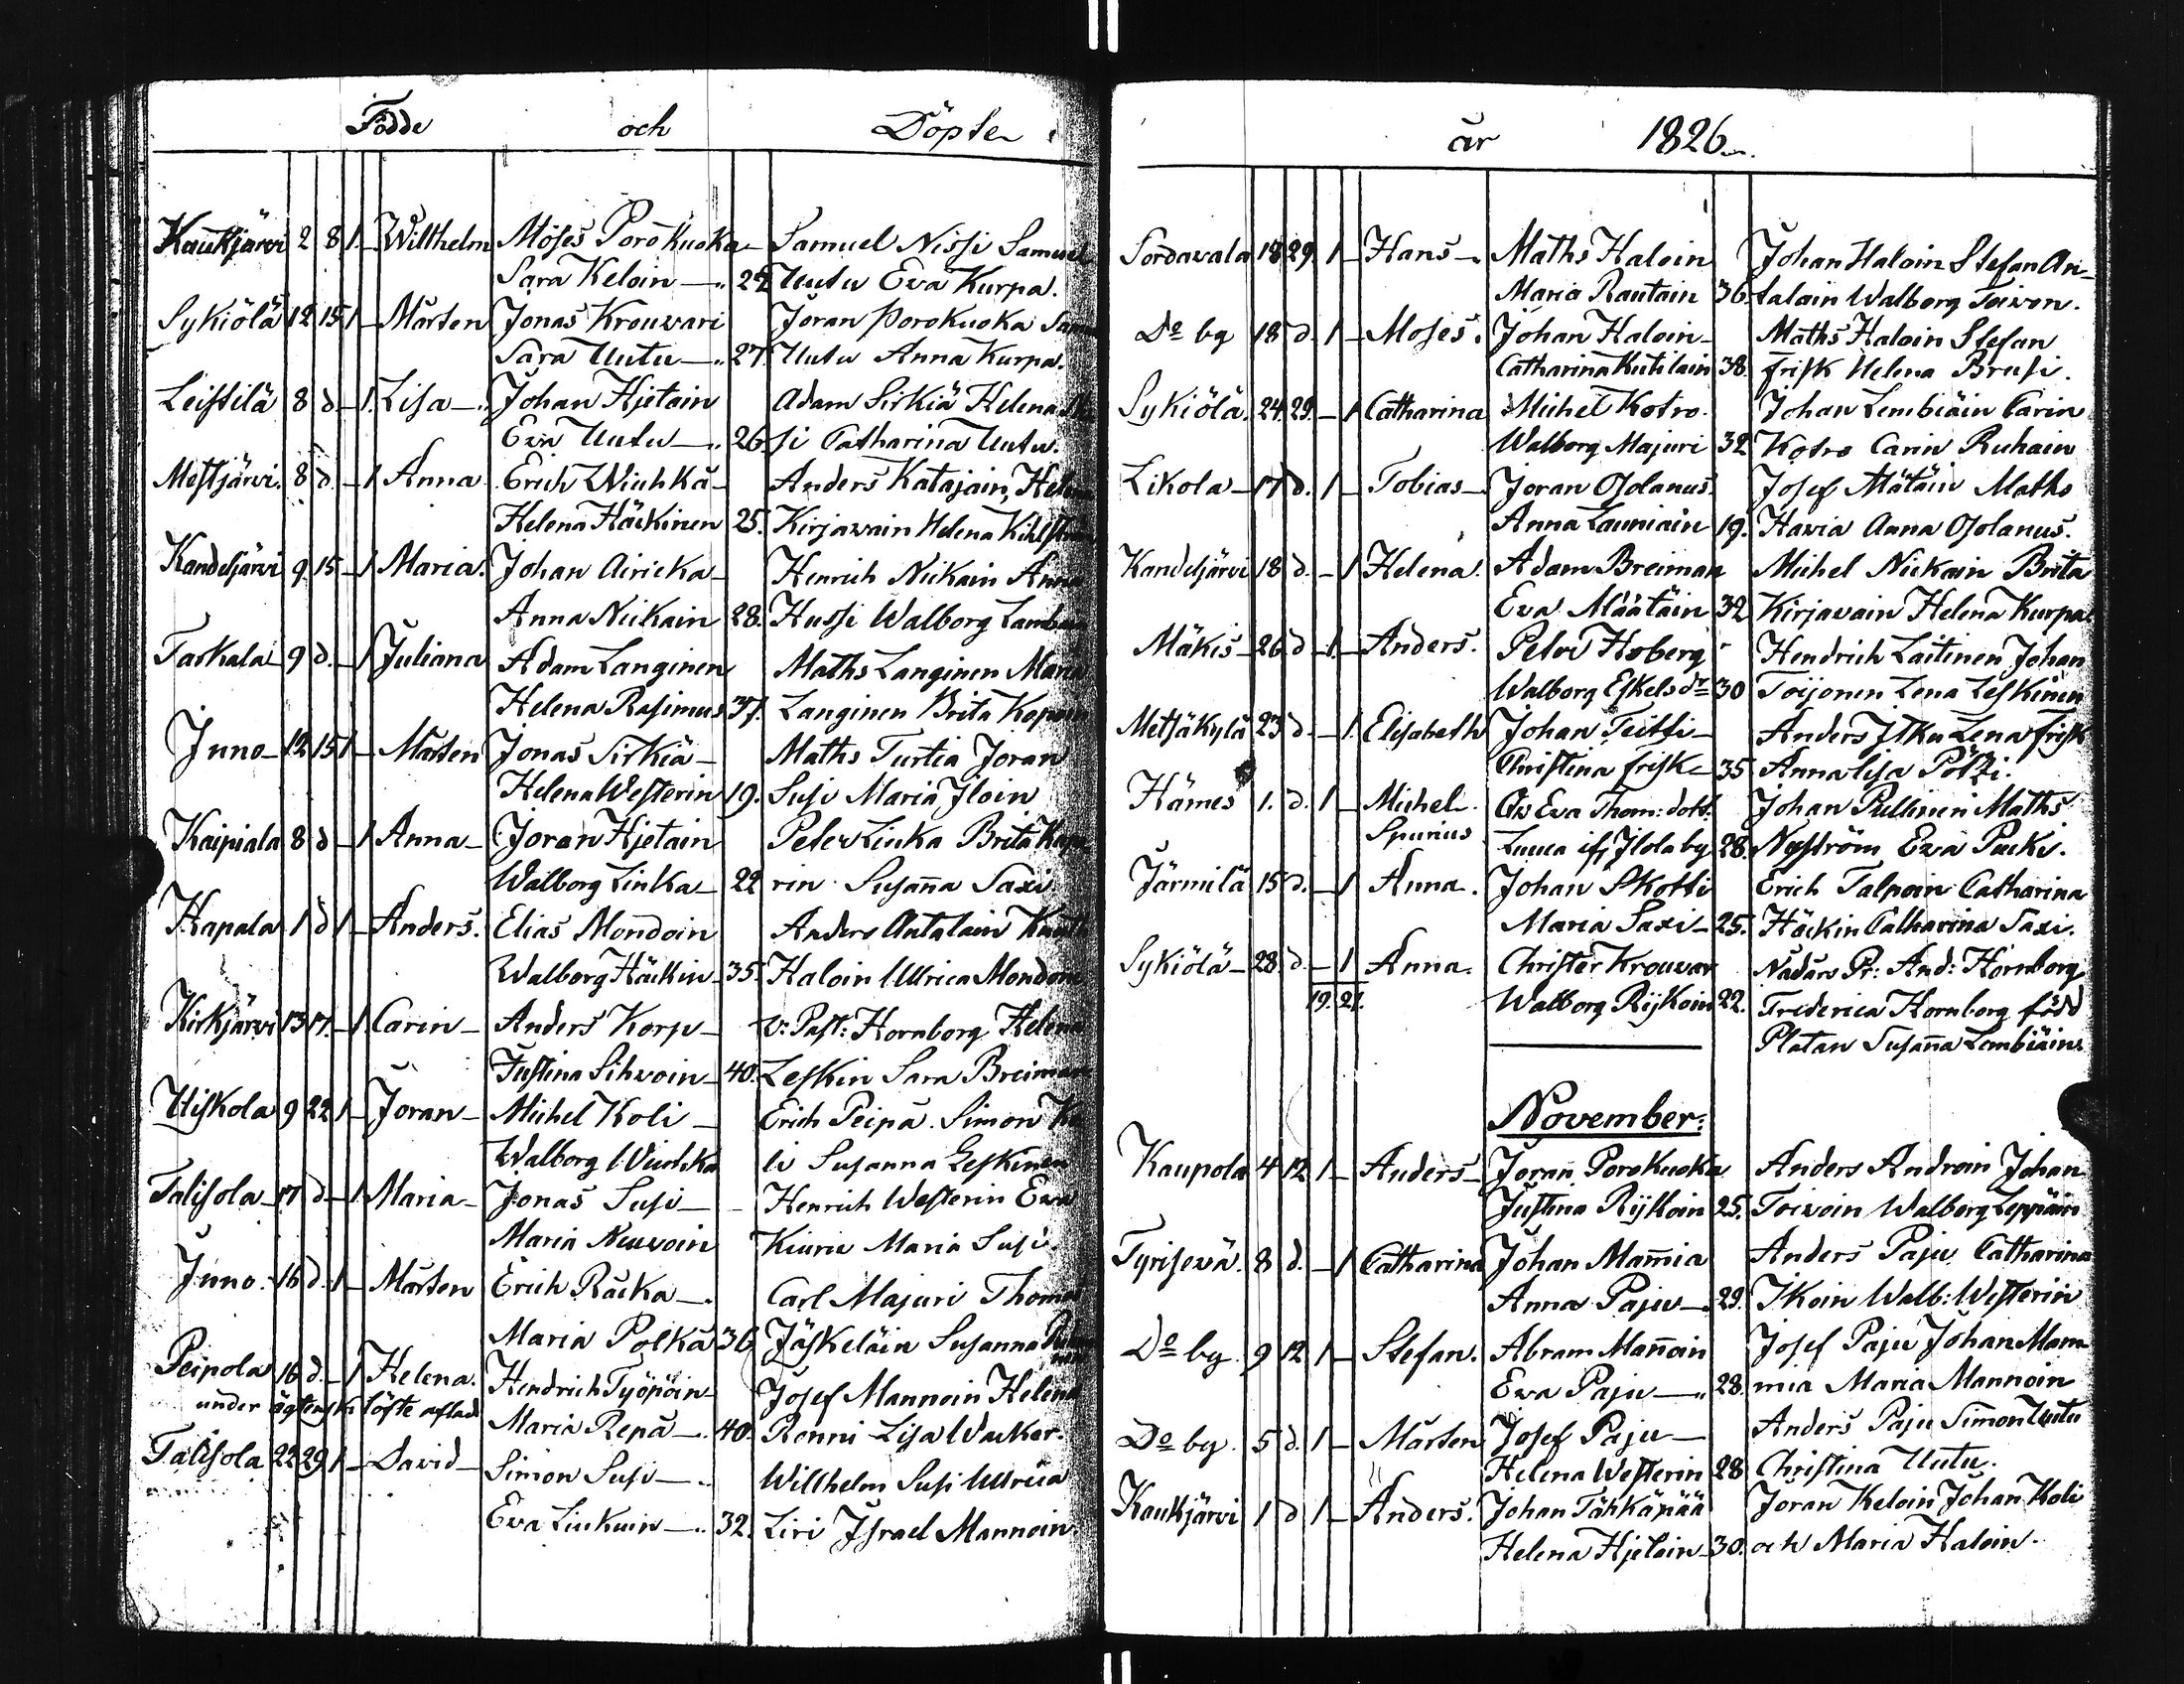 Födde och Döpte
Kaukjärvi 2 8 1 – Willhelm Moses Porokuoka – Samuel Nissi Samuel
Sara Keloin – 22 Uutu Eva Kurpa.
Sykiölä 12 15 1 – Mårten Jonas Krouvari Joran Porokuoka
Sara Uutu – 27. Uutu Anna Kurpa.
Leistilä 8 d – 1. Lisa – Johan Hjetain Adam Sirkiä Helena
Eva Uutu – 26 si Catharina Uutu.
Mestjärvi. 8 d. – 1 Anna Erich Wiuhka – Anders Katajain, Helena
Helena Häckinen 25. Kirjavain Helena
Kandeljärvi 9. 15 – 1 Maria. Johan Airicka – Henrich Nickain Anna
Anna Nickain 28. Hussi Walborg
Taskala 9 d. – 1 Juliana Adam Langinen Maths Langinen Maria
Helena Rasimus 37. Langinen Brita
Inno – 12 15 1 – Mårten Jonas Sirkiä – Maths Turtia Joran
Helena Westerin 19. Susi Maria Iloin
Kaipiala 8 d – 1 Anna – Joran Hjetain Peter Linka Brita
Walborg Linka – 22 rin Susaña Saxi
Kapala 1 d 1 – Anders. Elias Mondoin Anders Antalain
Walborg Häckin – 35 Haloin Ullrica Mondoin
Kirkjärvi 13 17. – 1 Carin – Anders Korp – v: Past: Hornborg Helena
Justina Sihvoin – 40. Leskin Sara Breiman
Uiskola 9 22 1 – Joran – Michel Koli – Erich Peipå. Simon
Walborg Wiuhka Susanna Leskinen
Talisola – 17 d – 1 Maria – Jonas Susi – Henrich Westerin Eva
Maria Neuvoin Kiuru Maria Susi.
Inno. 16 d. 1 – Mårten Erich Räcka – Carl Majuri Thomas
Maria Polka 36 Jäskeläin Susanna
Peipola 16 d. – 1 Helena. Hendrich Työpöin Josef Mannoin Helena
under ägtensk: löfte aflad Maria Repä – 40. Ronni Lisa Wacker.
Talisola 22 29 1 – David – Simon Susi – Willhelm Susi Ullrica
Eva Liukuin – 32. Liri Israel Mannoin
år 1826.
Sordavala 18 29. 1 – Hans – Maths Haloin Johan Haloin Stefan An-
Maria Rautain 36. talain Walborg Toivon.
Do by 18 d. 1 – Moses. Johan Haloin – Maths Haloin Stefan
Catharina Kutilain 38. Frisk Helena Brusi.
Sykiölä. 24. 29. – 1 Catharina Michel Kotro. Johan Lembiäin Carin
Walborg Majuri 32 Kotro Carin Ruhain
Likola – 17 d. 1 – Tobias – Joran Osolanus. Josef Mätäin Maths
Anna Launiain 19. Havia Anna Osolanus.
Kandeljärvi 18 d. – 1 Helena. Adam Breiman Michel Nickain Brita
Eva Määtäin 32 Kirjavain Helena Kurpa
Mäkis – 26 d – 1. – Anders. Petri Hoberg Hendrich Laitinen Johan
Walborg Eskelsdr 30 Toijonen Lena Leskinen
Metsäkylä 23 d. – 1. Elisabeth Johan Teitti – Anders Itku Lena Frisk
Christina Frisk – 35 Anna Lisa Pölzi.
Hämes 1. d. 1 – Michel Qv Eva Thom: dott. Johan Pullinen Maths
Spurius Luuca if Ilola by 28. Nyström Eva Pucki.
Järmilä 15 d. – 1 Anna. Johan Skotti Erich Talpoin Catharina
Maria Saxi – 25. Häckin Catharina Saxi.
Sykiölä – 28. d. – 1 Anna. Christer Krouvar Nådårs Pr: And: Hornborg
19. 21. Walborg Rijkoin 22. Friderica Hornborg född
Platan Susaña Lembiäin
November.
Kaupola 4 12 1 – Anders – Joran Porokuoka Anders Androin Johan
Justina Rijkoin 25. Toivoin Walborg Leppäin
Tyrisevä. 8 d. – 1 Catharina Johan Mam̃ia Anders Paju Catharina
Anna Paju – 29. Ikoin Walb: Westerin
Do by. 9 12 1 – Stefan. Abram Mañoin Josef Paju Johan Mam-
Eva Paju – 28 mia Maria Mannoin
Do by. 5 d. 1 – Mårten Josef Paju – Anders Paju Simon Uutu
Helena Westerin 28 Christina Uutu.
Kaukjärvi 1 d 1 – Anders. Johan Tähkäpää Joran Keloin Johan Koli
Helena Hjetain – 30. och Maria Haloin.